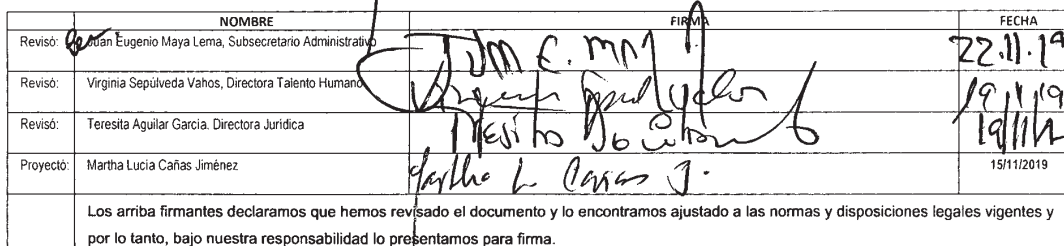 NOMBRE FIRMA FECHA
Revisó: Juan Eugenio Maya Lema, Subsecretario Administrativo 22.11.19
Revisó: Virginia Sepúlveda Vahos, Directora Talento Humano
Revisó: Teresita Aguilar García. Directora Jurídica
Proyectó: Martha Lucía Cañas Jiménez Martha L Cañas J. 15/11/2019
Los arriba firmantes declaramos que hemos revisado el documento y lo encontramos ajustado a las normas y disposiciones legales vigentes y
por lo tanto, bajo nuestra responsabilidad lo presentamos para firma.